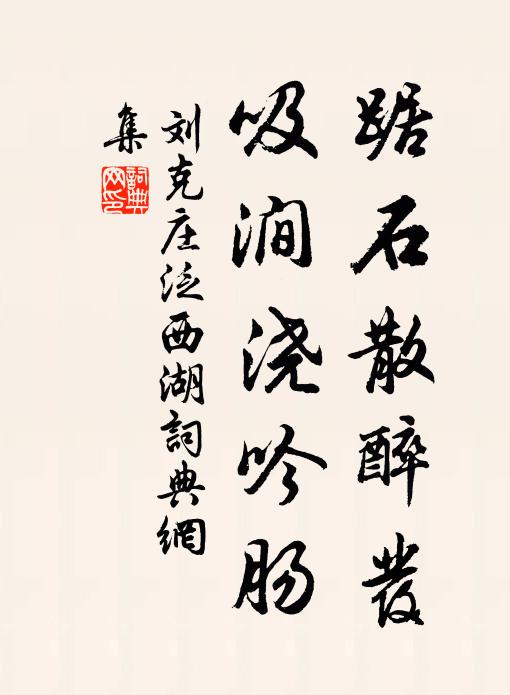 踞石散醉發
吸涧浇吟肠
刘克庄泛西湖詞典網
集
詞典
网印